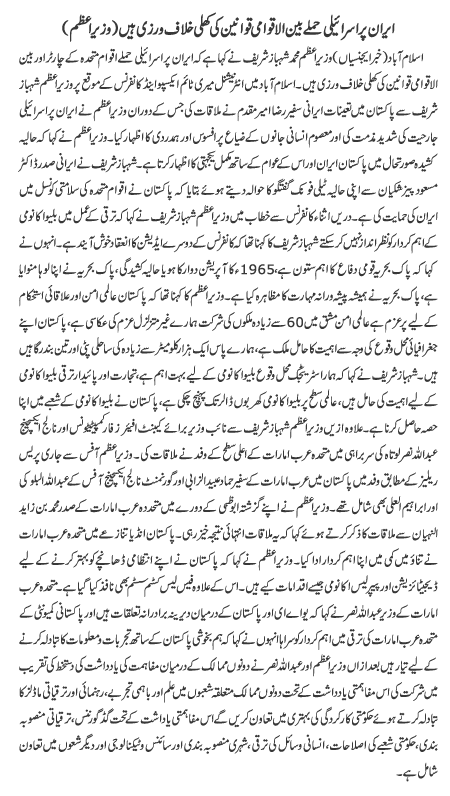 ایران پر اسرائیلی حملے بین الاقوامی قوانین کی کھلی خلاف ورزی ہیں (وزیراعظم)
اسلام آباد (خبر ایجنسیاں) وزیراعظم محمد شہباز شریف نے کہا ہے کہ ایران پر اسرائیلی حملے اقوام متحدہ کے چارٹر اور بین
الاقوامی قوانین کی کھلی خلاف ورزی ہیں۔ اسلام آباد میں انٹرنیشنل میری ٹائم ایکسپو اینڈ کانفرنس کے موقع پر وزیراعظم شہباز
شریف سے پاکستان میں تعینات ایرانی سفیر رضا امیر مقدم نے ملاقات کی جس کے دوران وزیراعظم نے ایران پر اسرائیلی
جارحیت کی شدید مذمت کی اور معصوم انسانی جانوں کے ضیاع پر افسوس اور ہمدردی کا اظہار کیا۔ وزیراعظم نے کہا کہ حالیہ
کشیدہ صورتحال میں پاکستان ایران اور اس کے عوام کے ساتھ مکمل یکجہتی کا اظہار کرتا ہے۔ شہباز شریف نے ایرانی صدر ڈاکٹر
مسعود پیزشکیان سے اپنی حالیہ ٹیلی فونک گفتگو کا حوالہ دیتے ہوئے بتایا کہ پاکستان نے اقوام متحدہ کی سلامتی کونسل میں
ایران کی حمایت کی ہے۔ دریں اثناء کانفرنس سے خطاب میں وزیراعظم شہباز شریف نے کہا کہ ترقی کے عمل میں بلیو اکانومی
کے اہم کردار کو نظر انداز نہیں کر سکتے شہباز شریف کا کہنا تھا کہ کانفرنس کے دوسرے ایڈیشن کا انعقاد خوش آیند ہے۔ انہوں نے
کہا کہ پاک بحریہ قومی دفاع کا اہم ستون ہے، 1965ء کا آپریشن دوارکا ہو یا حالیہ کشیدگی، پاک بحریہ نے اپنا لوہا منوایا
ہے، پاک بحریہ نے ہمیشہ پیشہ ورانہ مہارت کا مظاہرہ کیا ہے۔ وزیراعظم کا کہنا تھا کہ پاکستان عالمی امن اور علاقائی استحکام
کے لیے پرعزم ہے عالمی امن مشق میں 60 سے زیادہ ملکوں کی شرکت ہمارے غیر متزلزل عزم کی عکاسی ہے، پاکستان اپنے
جغرافیائی محل وقوع کی وجہ سے اہمیت کا حامل ملک ہے، ہمارے پاس ایک ہزار کلومیٹر سے زیادہ کی ساحلی پٹی اور تین بندرگاہیں
ہیں۔ شہباز شریف نے کہا کہ ہمارا سٹریٹیجک محل وقوع بلیو اکانومی کے لیے بہت اہم ہے، تجارت اور پائیدار ترقی بلیو اکانومی
کے لیے اہمیت کی حامل ہیں، عالمی سطح پر بلیو اکانومی کھربوں ڈالر تک پہنچ چکی ہے، پاکستان نے بلیو اکانومی کے شعبے میں اپنا
حصہ حاصل کرنا ہے۔ علاوہ ازیں وزیراعظم شہباز شریف سے نائب وزیر برائے کیبنٹ افیئرز فار کمپیٹیٹیونس اور نالج ایکسچینج
عبداللہ نصر لوتاہ کی سربراہی میں متحدہ عرب امارات کے اعلی سطح کے وفد نے ملاقات کی۔ وزیراعظم آفس سے جاری پریس
ریلیز کے مطابق وفد میں پاکستان میں متحدہ عرب امارات کے سفیر حماد عبید الزابی اور گورنمنٹ نالج ایکسچینج آفس کے عبداللہ البلوکی
اور ابراہیم العلی بھی شامل تھے۔ وزیراعظم نے اپنے گزشتہ ابوظہبی کے دورے میں متحدہ عرب امارات کے صدر محمد بن زاید
النہیان سے ملاقات کا ذکر کرتے ہوئے کہا کہ یہ ملاقات انتہائی نتیجہ خیز رہی۔ پاکستان انڈیا تنازعے میں متحدہ عرب امارات
نے تناؤ میں کمی میں اپنا اہم کردار ادا کیا۔ وزیراعظم نے کہا کہ پاکستان نے اپنے انتظامی ڈھانچے کو بہتر کرنے کے لیے
ڈیجیٹائزیشن اور پیپر لیس اکانومی جیسے اقدامات کیے ہیں۔ اس کے علاوہ فیس لیس کسٹم سسٹم بھی نافذ کیا گیا ہے۔ متحدہ عرب
امارات کے وزیر عبداللہ نصر نے کہا کہ یو اے ای اور پاکستان کے درمیان دیرینہ برادرانہ تعلقات ہیں اور پاکستانی کمیونٹی کے
متحدہ عرب امارات کی ترقی میں اہم کردار کو سراہا انہوں نے کہا کہ ہم بخوشی پاکستان کے ساتھ تجربات و معلومات کا تبادلہ کرنے
کے لیے تیار ہیں بعد ازاں وزیراعظم اور عبداللہ نصر نے دونوں ممالک کے درمیان مفاہمت کی یادداشت کی دستخط کی تقریب
میں شرکت کی اس مفاہمتی یادداشت کے تحت دونوں ممالک متعلقہ شعبوں میں علم اور باہمی تجربے، رہنمائی اور ترقیاتی ماڈلز کا
تبادلہ کرتے ہوئے حکومتی کارکردگی کی بہتری میں تعاون کریں گے اس مفاہمتی یادداشت کے تحت گڈ گورننس، ترقیاتی منصوبہ
بندی، حکومتی شعبے کی اصلاحات، انسانی وسائل کی ترقی، شہری منصوبہ بندی اور سائنس و ٹیکنالوجی اور دیگر شعبوں میں تعاون
شامل ہے۔